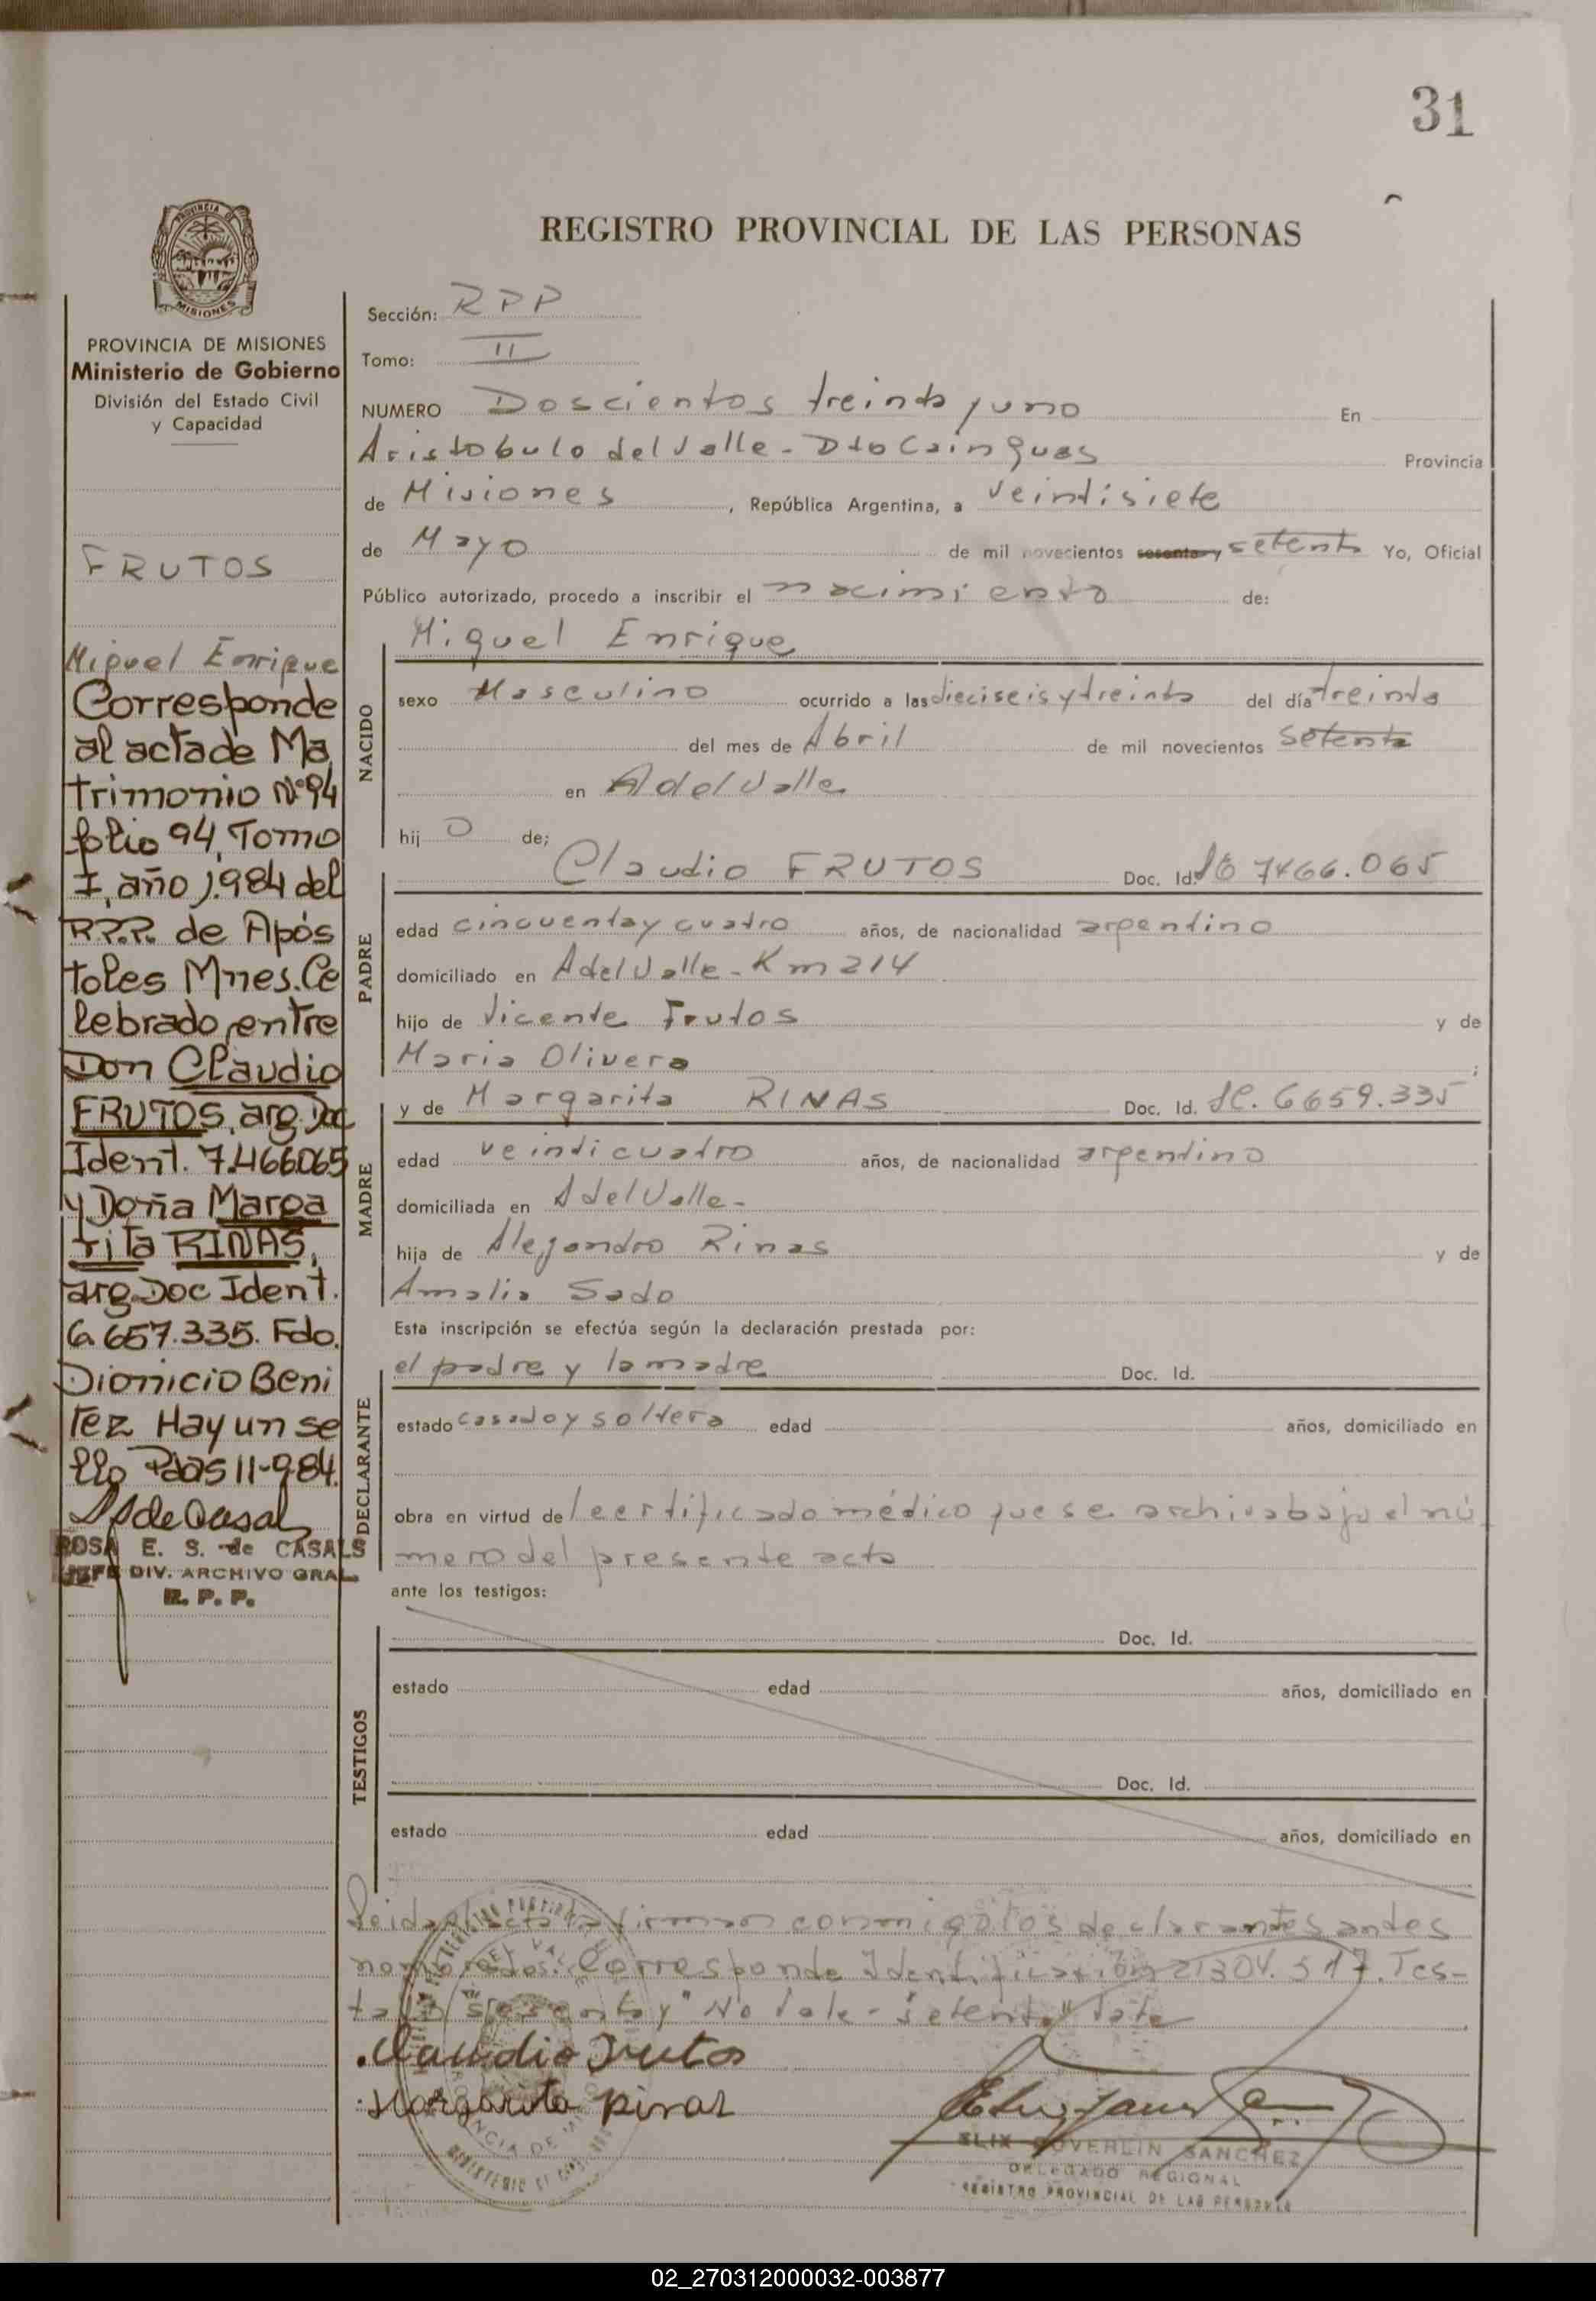 31
REGISTRO PROVINCIAL DE LAS PERSONAS
PROVINCIA DE
MISIONES
PROVINCIA DE MISIONES
Ministerio de Gobierno
División del Estado Civil
y Capacidad
FRUTOS
Miguel Enrique
Corresponde
al acta de Ma
trimonio Nº 94
folio 94, Tomo
I, año 1.984 del
R.P.P. de Após
toles Mnes. Ce
lebrado entre
Don Claudio
FRUTOS, arg. Doc
Ident. 7.466.065
y Doña Marga
rita RINAS,
arg. Doc Ident.
6.657.335. Fdo.
Dionicio Beni
tez Hay un se
llo Pdas 11-984.
ROSA E. S. de CASALS
JEFE DIV. ARCHIVO GRAL
R. P. P.
Sección: RPP
Tomo: II
NUMERO Doscientos treinta y uno En
Aristobulo del Valle - Dto Cainguas Provincia
de Misiones , República Argentina, a veintisiete
de Mayo de mil novecientos sesenta y setenta Yo, Oficial
Público autorizado, procedo a inscribir el nacimiento de:
Miguel Enrique
NACIDO
sexo Masculino ocurrido a las dieciseis y treinta del día treinta
del mes de Abril de mil novecientos setenta
en A del Valle
hij o de;
Claudio FRUTOS Doc. Id. 7466.065
PADRE
edad cincuenta y cuatro años, de nacionalidad argentino
domiciliado en A del Valle - Km 214
hijo de Vicente Frutos y de
Maria Olivera ;
y de Margarita RINAS Doc. Id. LC. 6659.335
MADRE
edad veinticuatro años, de nacionalidad argentino
domiciliada en A del Valle -
hija de Alejandro Rinas y de
Amalia Sado
Esta inscripción se efectúa según la declaración prestada por:
el padre y la madre Doc. Id.
DECLARANTE
estado casado y soltera edad años, domiciliado en
obra en virtud de certificado médico que se archiva bajo el nú
mero del presente acta
ante los testigos:
Doc. Id.
TESTIGOS
estado edad años, domiciliado en
Doc. Id.
estado edad años, domiciliado en
Leida el acta la firman conmigo los declarantes antes
nombrados. Corresponde Identificación 21304.517. Tes-
tado "sesenta y" No Vale - "setenta" Vale
Claudio Frutos
Margarita Rinas
ELIX SOVERLIN SANCHEZ
DELEGADO REGIONAL
REGISTRO PROVINCIAL DE LAS PERSONAS
02_270312000032-003877